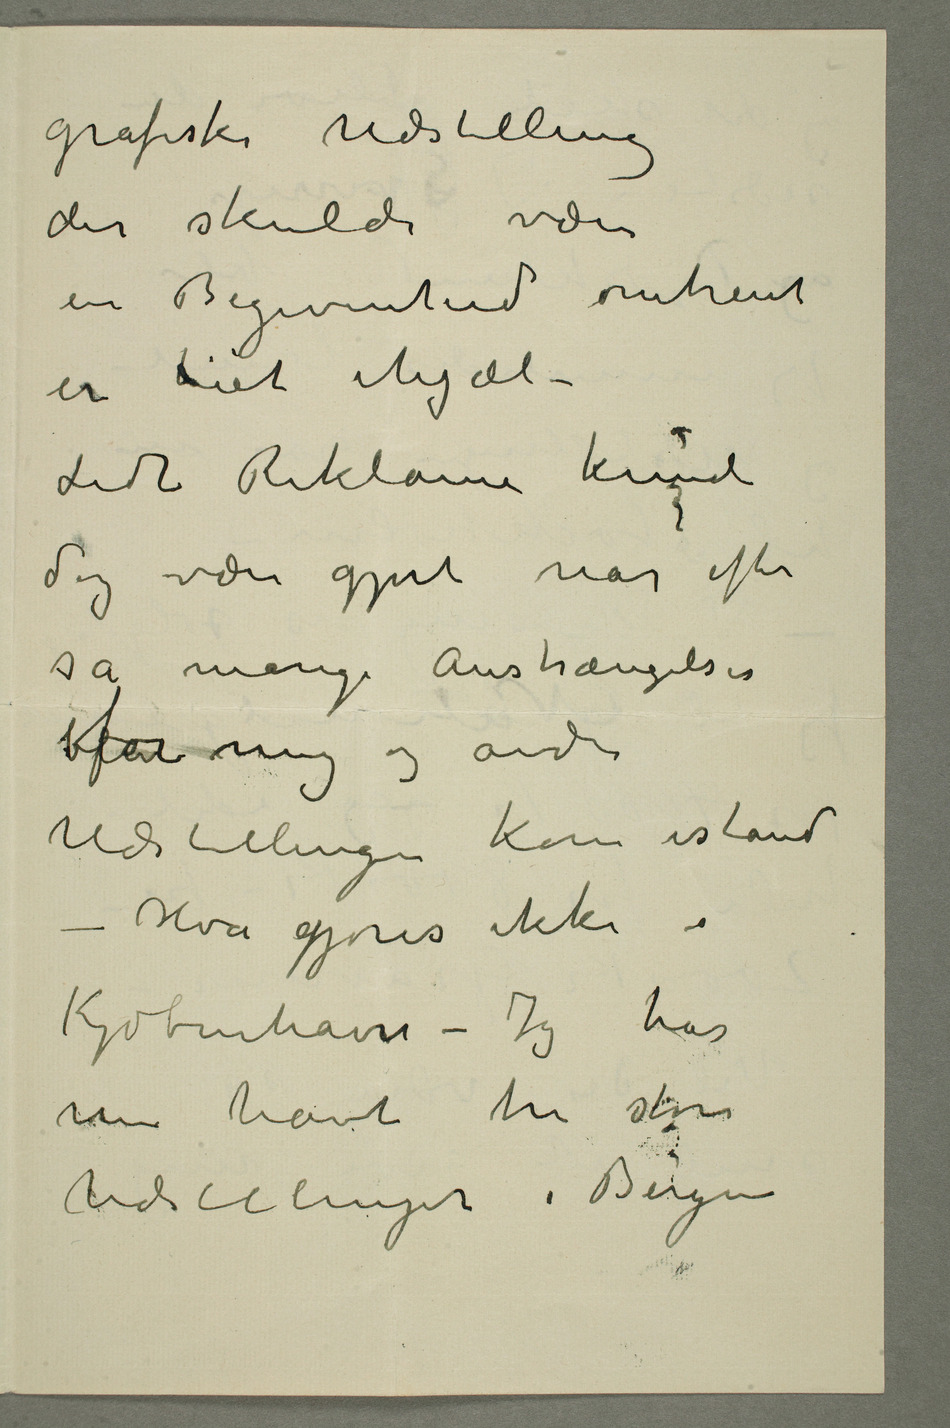 grafiske Udstilling
der skulde være
en Begivenhed omtrent
er tiet ihjæl –
Lidt Reklame kunde
dog være gjort når efter
så mange Anstrængelser
før mig og andre
Udstillingen kom istand
– Hva gjøres ikke i
Kjøbenhavn – Jeg har
nu havt tre store
Udstillinger i Bergen